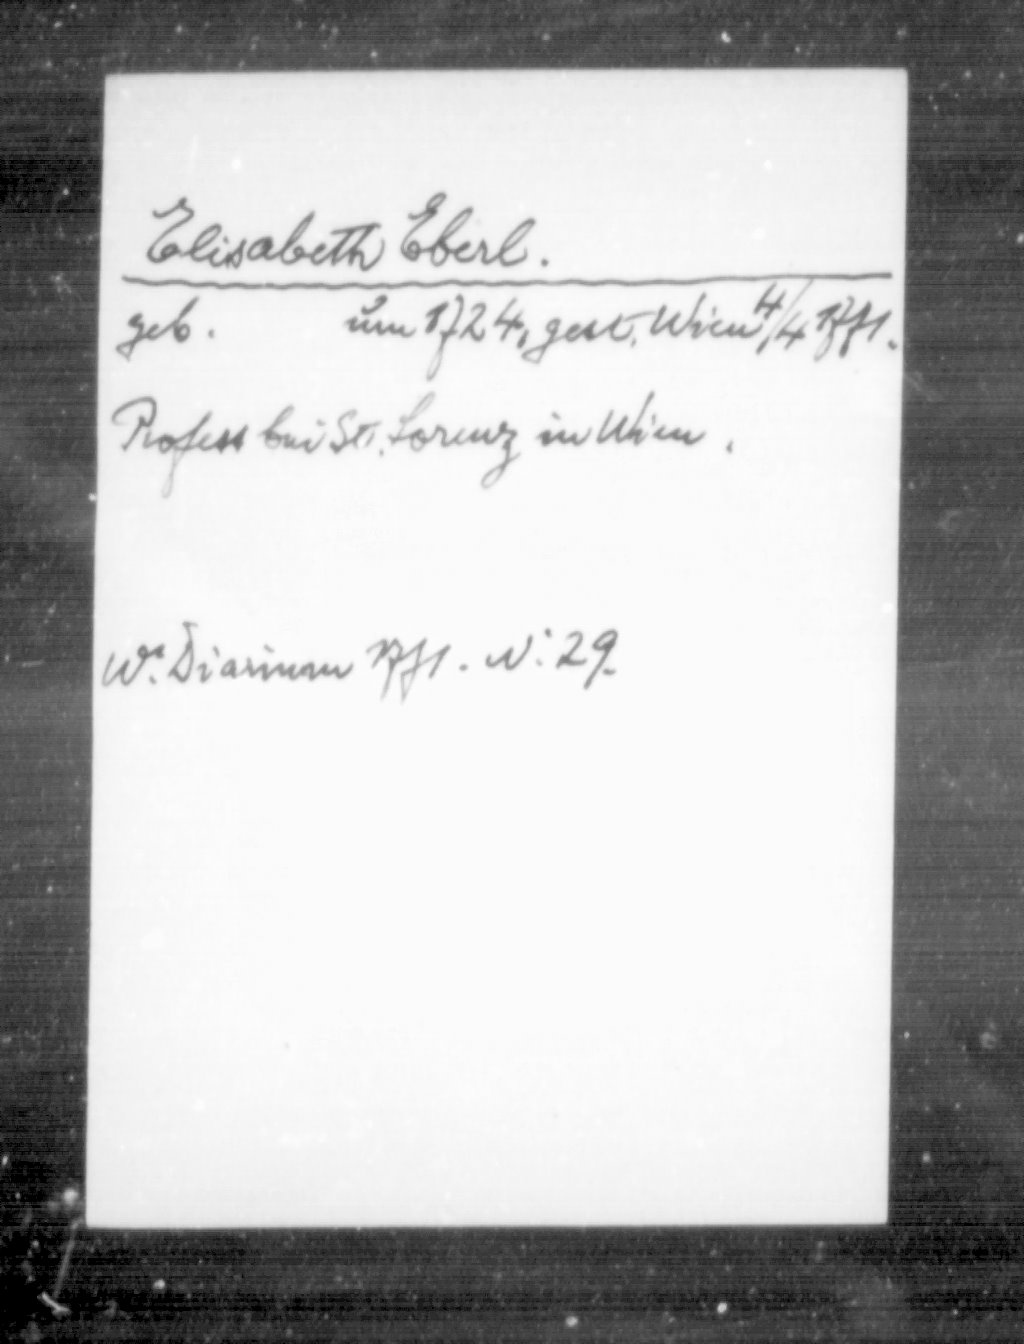 Elisabeth Eberl.
geb. um 1724, gest. Wien 4/4 1771.
Profess bei St. Lorenz in Wien.
Wr. Diarium 1771. N: 29.